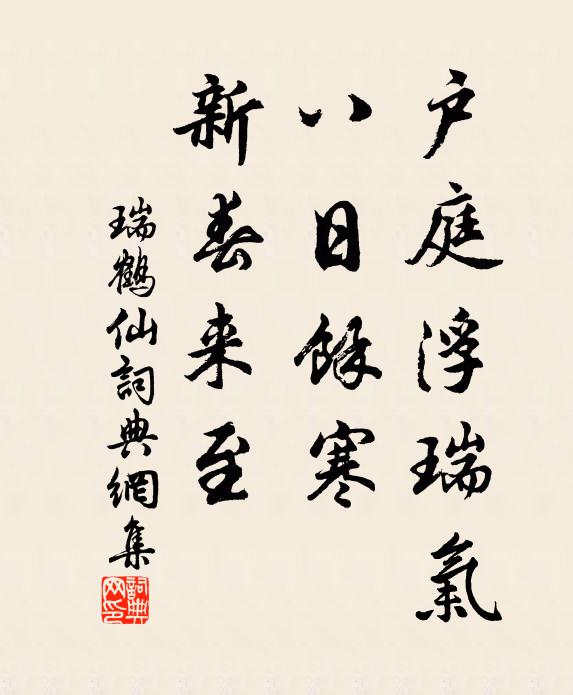 户庭浮瑞氣
八日餘寒
新春来至
瑞鶴仙詞典網集
詞典网印